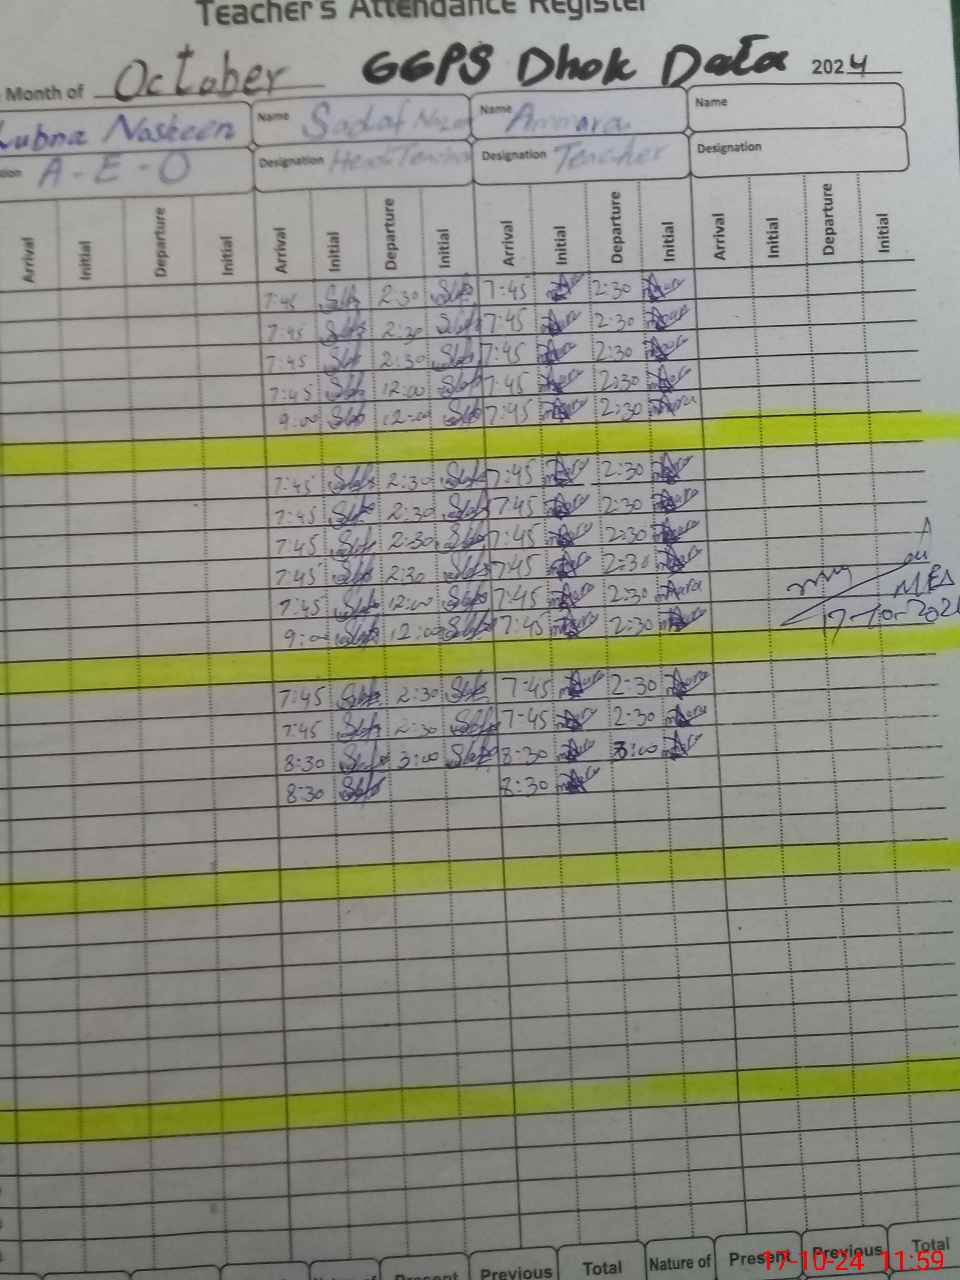 Teacher's Attendance Register
Month of October GGPS Dhok Data 2024
Lubna Nosheen Name Sadaf Name Ammara Name
A-E-O Designation Head Teacher Designation Teacher Designation
Arrival Initial Departure Initial Arrival Initial Departure Initial Arrival Initial Departure Initial Arrival Initial Departure Initial
7:45 2:30 7:45 2:30
7:45 2:30 7:45 2:30
7:45 2:30 7:45 2:30
7:45 12:00 7:45 2:30
9:00 12:00 7:45 2:30
7:45 2:30 7:45 2:30
7:45 2:30 7:45 2:30
7:45 2:30 7:45 2:30
7:45 2:30 7:45 2:30
7:45 12:00 7:45 2:30
9:00 12:00 7:45 2:30
MEA
17-10-2024
7:45 2:30 7:45 2:30
7:45 2:30 7:45 2:30
8:30 3:00 8:30 3:00
8:30 8:30
Present Previous Total Nature of Present Previous Total
17-10-24 11:59